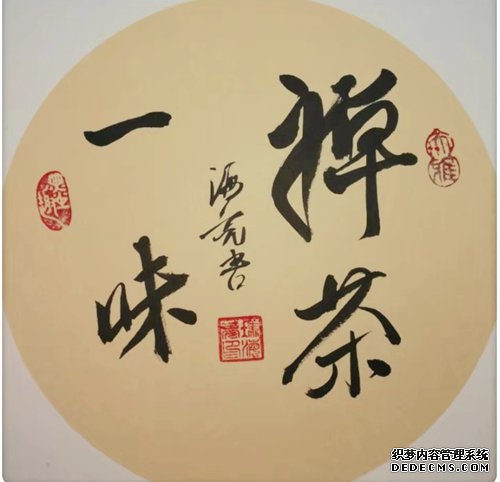 禅茶
一味
海亮书
织梦内容管理系统
DEDECMS.COM